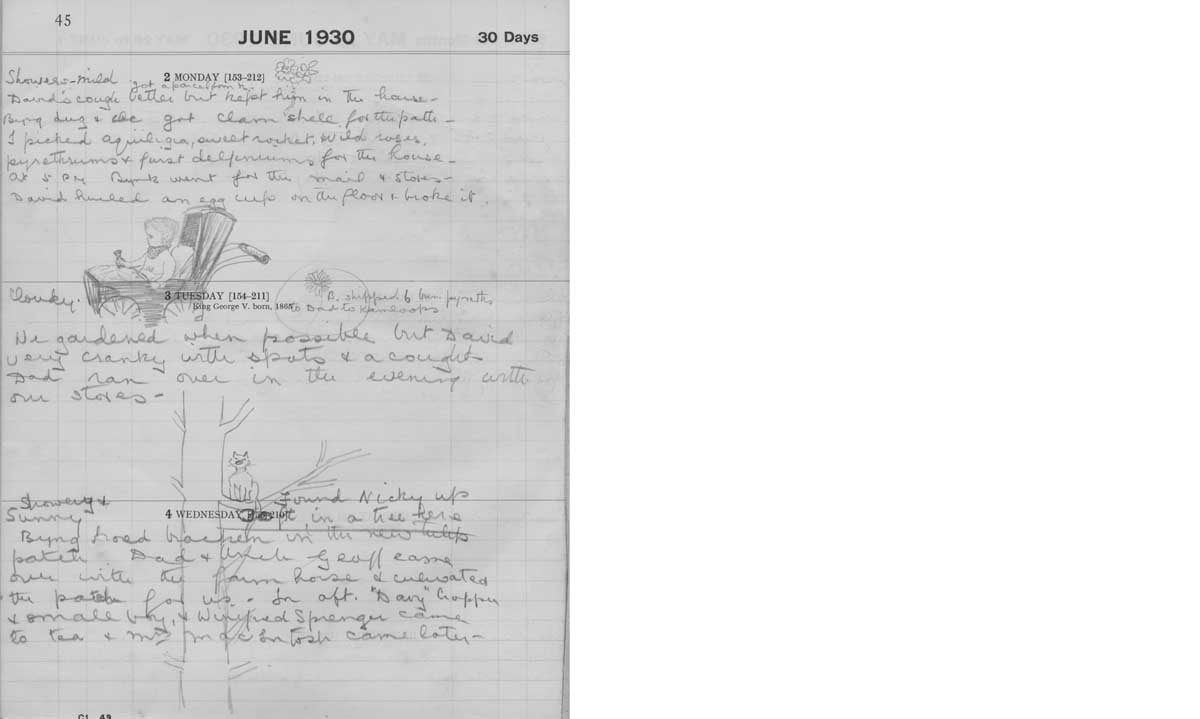 45
JUNE 1930
30 Days
2 MONDAY [153–212]
Showers – mild
got a parcel from
David's cough better but kept him in the house –
Byng dug & got clam shell for the path –
I picked aquiligia, sweet rocket, wild roses,
pyrethrums & first delfeniums for the house –
at 5 PM Byng went for the mail & stores –
David hurled an egg cup on the floor & broke it.
3 TUESDAY [154–211]
King George V. born, 1865
Cloudy.
B. shipped 6 bun pyreths
to Dad to Kamloops
We gardened when possible but David
very cranky with spots & a cough
Dad ran over in the evening with
our stores –
4 WEDNESDAY
Showery &
Sunny
Found Nicky up
in a tree here
Byng hoed bracken in the new tulip
patch Dad & Uncle Geoff came
over with the farm horse & cultivated
the patch for us. – In aft. "Davy" Cropper
& small boy, & Winifred Sprenger came
to tea & Mrs MacIntosh came later –